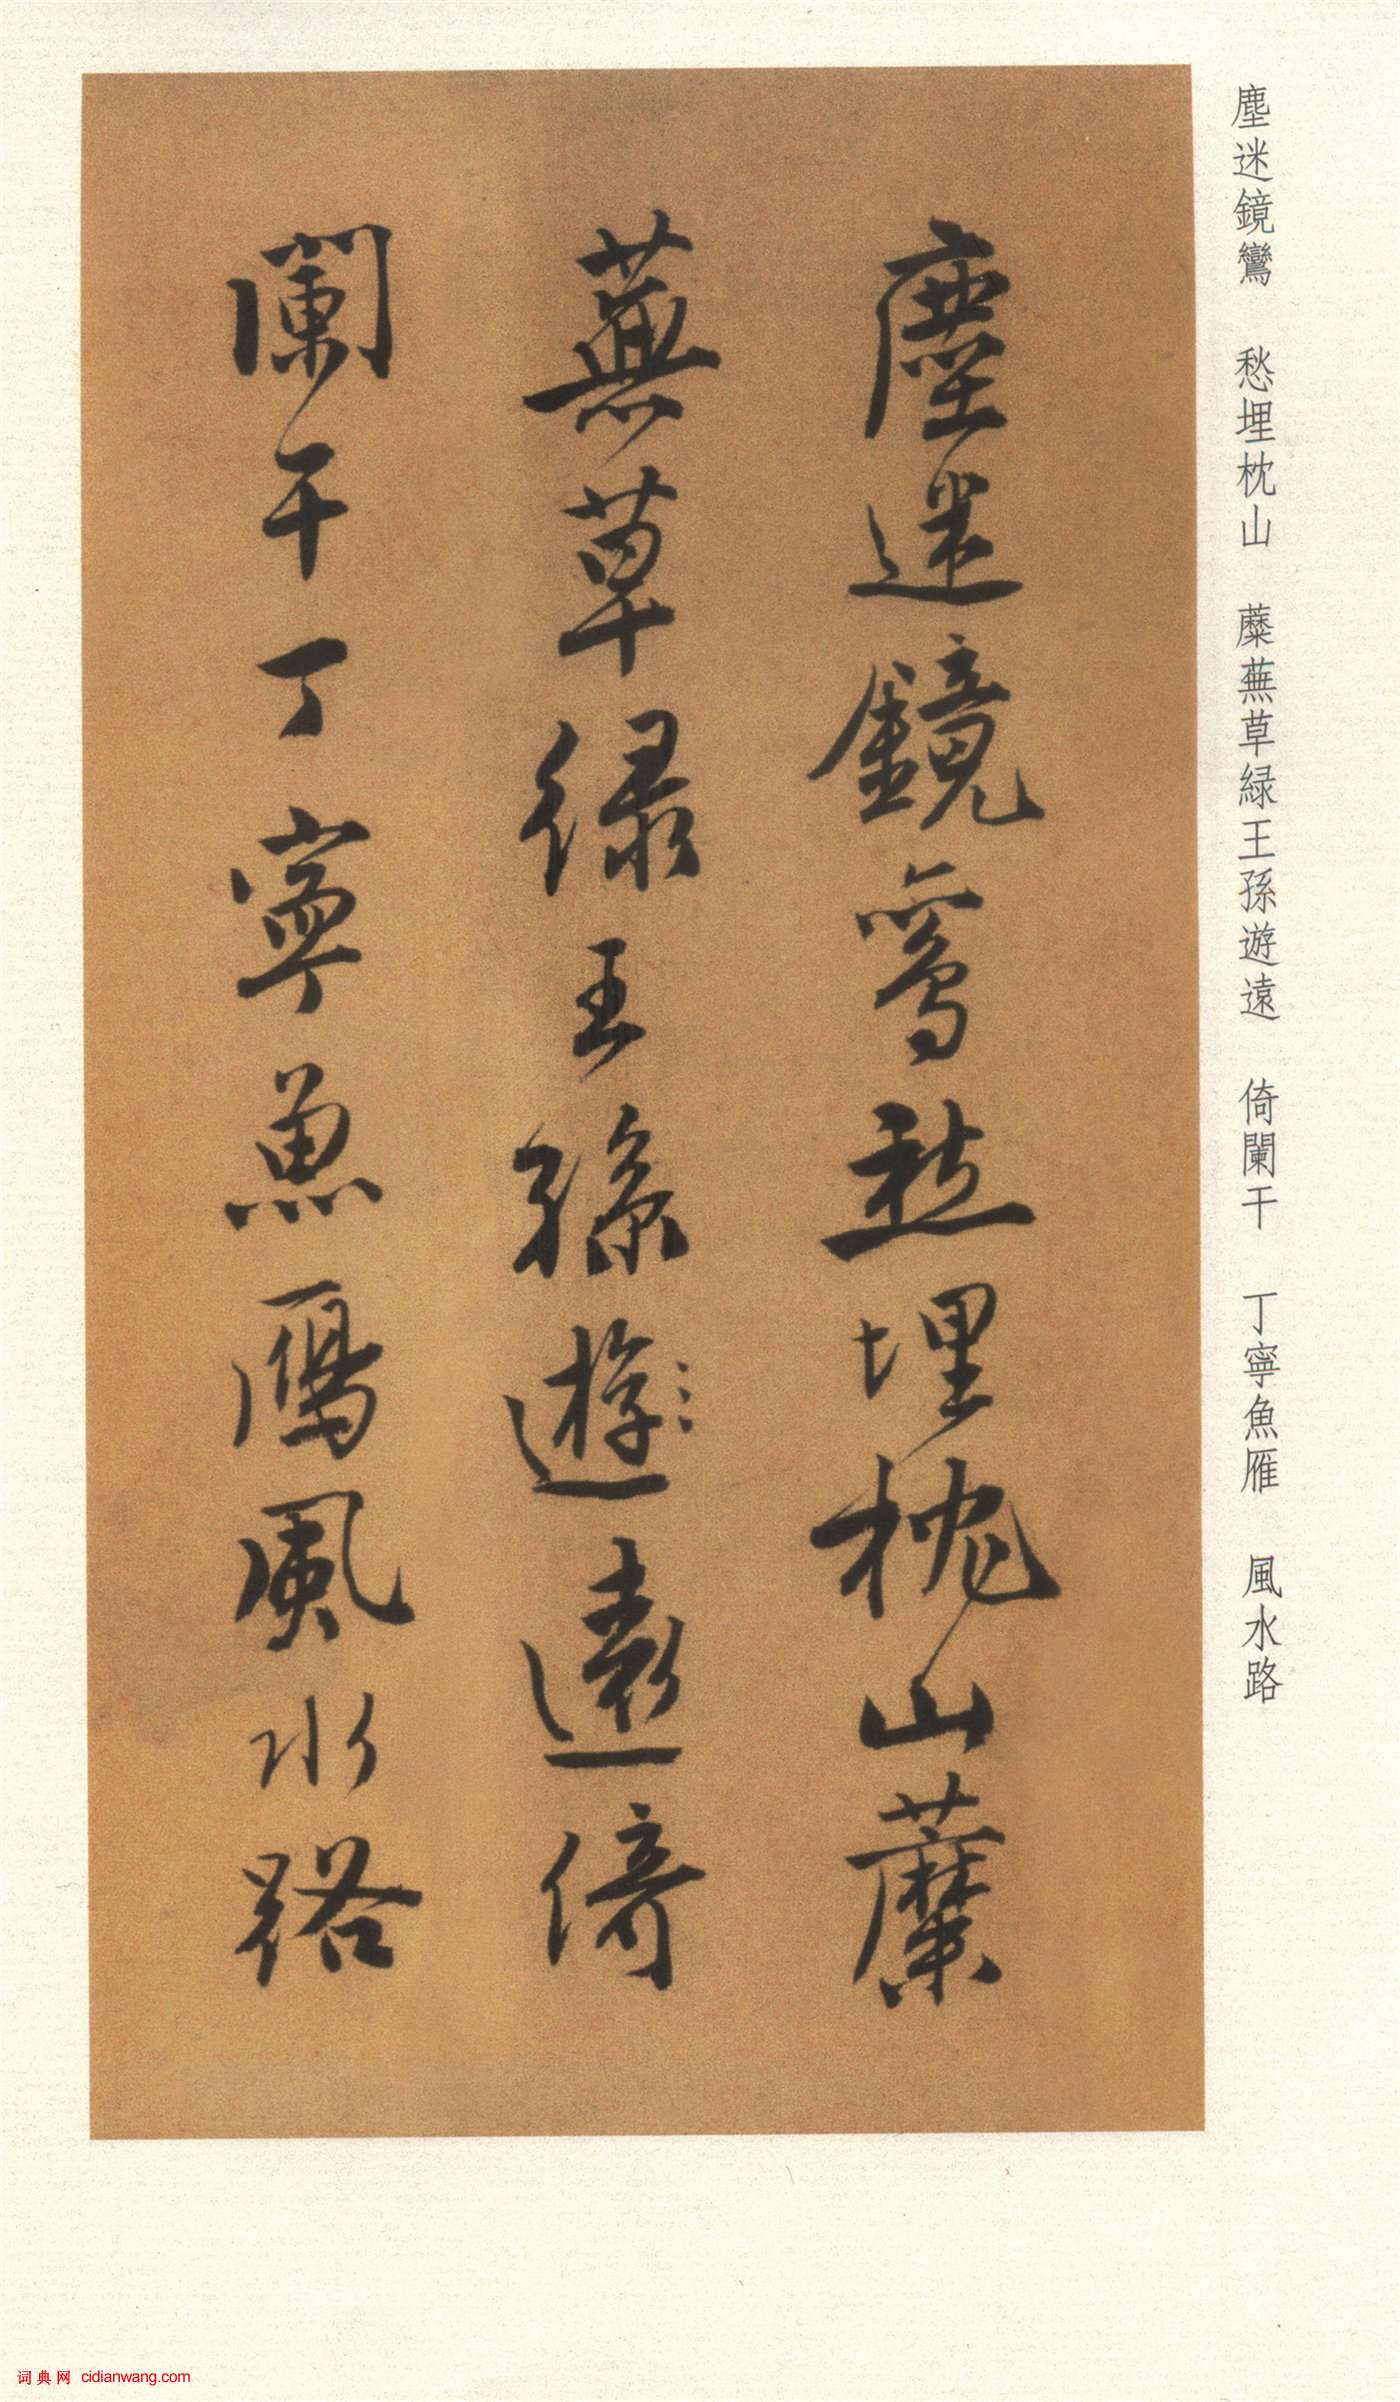 塵迷鏡鸞 愁埋枕山 蘼蕪草緑王孫遊遠 倚闌干 丁寧魚雁 風水路
塵迷鏡鸞愁埋枕山蘼
蕪草緑王孫遊遠倚
闌干丁寧魚鴈風水路
词典网 cidianwang.com